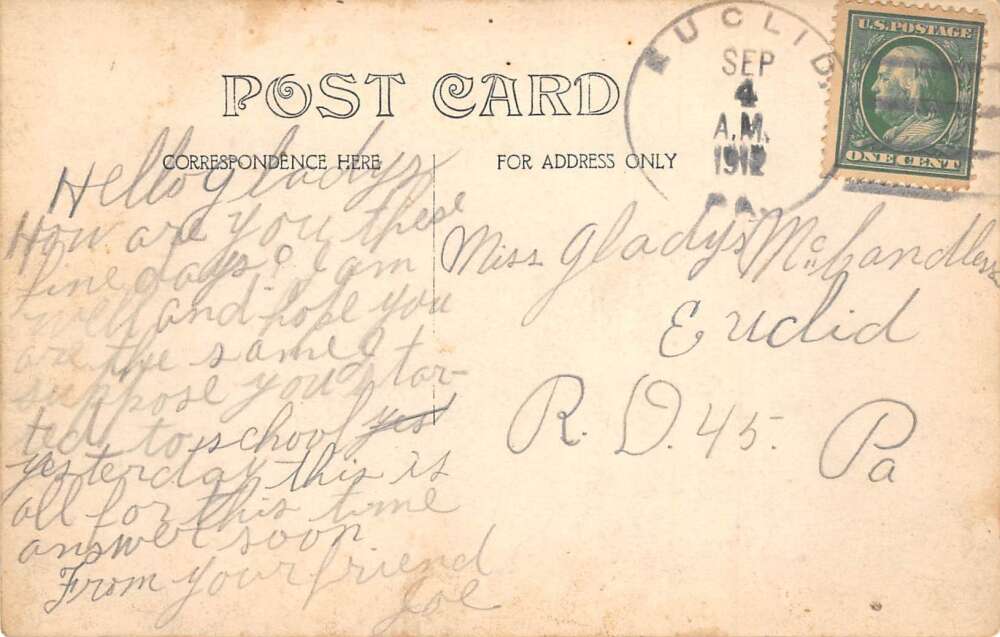 POST CARD
CORRESPONDENCE HERE
FOR ADDRESS ONLY
EUCLID,
SEP
4
A.M.
1912
PA.
U.S. POSTAGE
ONE CENT
Hello Gladys
How are you these
fine days? I am
well and hope you
are the same I
suppose you star-
ted to school yes
yesterday this is
all for this time
answer soon
From your friend
Joe
Miss Gladys McCandless
Euclid
R. D. 45. Pa